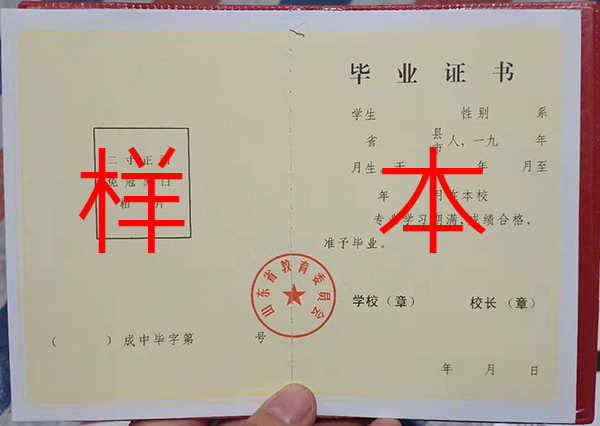 二寸正面
免冠黑白
相片
(　　)成中毕字第　　　号
样本
山东省教育委员会
毕业证书
学生　　　性别　　系
省　　县市人，一九　　年
月生　于　　　年　　月至
年　　月在本校
专业学习期满，成绩合格，
准予毕业。
学校（章）　　校长（章）
年　月　日